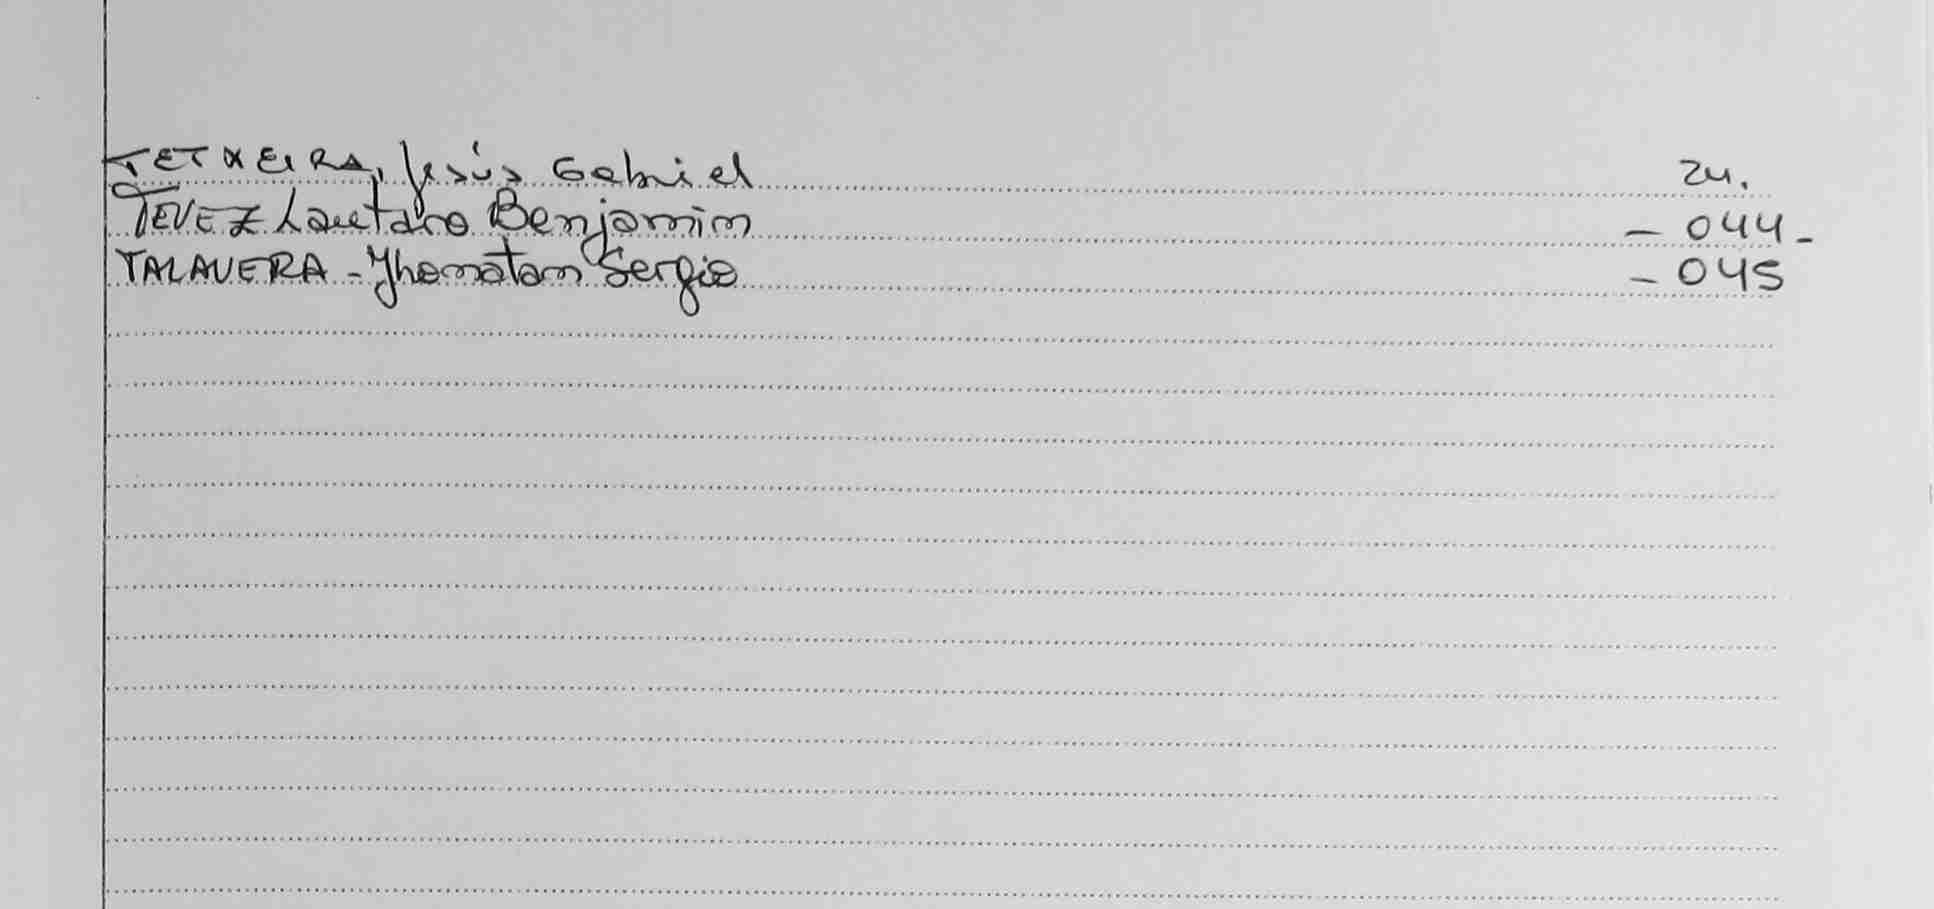 TETXEIRA, Jesús Gabriel 24.
TEVEZ Lautaro Benjamin - 044-
TALAVERA - Jhonatan Sergio - 045